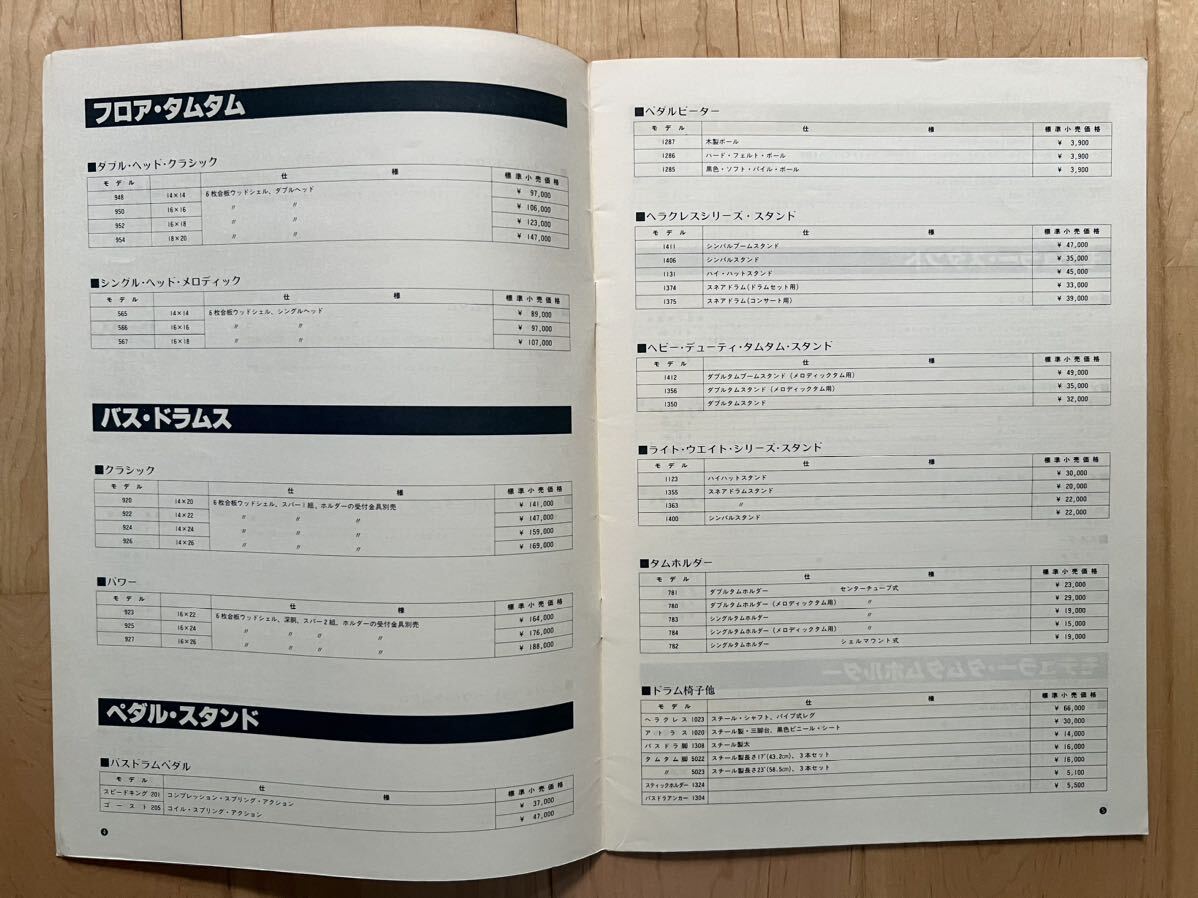 フロア・タムタム
■ダブル・ヘッド・クラシック
モデル 仕 様 標準小売価格
948 14×14 6枚合板ウッドシェル、ダブルヘッド ¥ 97,000
950 16×16 〃 〃 ¥ 106,000
952 16×18 〃 〃 ¥ 123,000
954 18×20 〃 〃 ¥ 147,000
■シングル・ヘッド・メロディック
モデル 仕 様 標準小売価格
565 14×14 6枚合板ウッドシェル、シングルヘッド ¥ 89,000
566 16×16 〃 〃 ¥ 97,000
567 16×18 〃 〃 ¥ 107,000
バス・ドラムス
■クラシック
モデル 仕 様 標準小売価格
920 14×20 6枚合板ウッドシェル、スパー1組、ホルダーの受付金具別売 ¥ 141,000
922 14×22 〃 〃 〃 ¥ 147,000
924 14×24 〃 〃 〃 ¥ 159,000
926 14×26 〃 〃 〃 ¥ 169,000
■パワー
モデル 仕 様 標準小売価格
923 16×22 6枚合板ウッドシェル、深胴、スパー2組、ホルダーの受付金具別売 ¥ 164,000
925 16×24 〃 〃 〃 〃 ¥ 176,000
927 16×26 〃 〃 〃 〃 ¥ 188,000
ペダル・スタンド
■バスドラムペダル
モデル 仕 様 標準小売価格
スピードキング 201 コンプレッション・スプリング・アクション ¥ 37,000
ゴースト 205 コイル・スプリング・アクション ¥ 47,000
4
■ペダルビーター
モデル 仕 様 標準小売価格
1287 木製ボール ¥ 3,900
1286 ハード・フェルト・ボール ¥ 3,900
1285 黒色・ソフト・パイル・ボール ¥ 3,900
■ヘラクレスシリーズ・スタンド
モデル 仕 様 標準小売価格
1411 シンバルブームスタンド ¥ 47,000
1406 シンバルスタンド ¥ 35,000
1131 ハイ・ハットスタンド ¥ 45,000
1374 スネアドラム(ドラムセット用) ¥ 33,000
1375 スネアドラム(コンサート用) ¥ 39,000
■ヘビー・デューティ・タムタム・スタンド
モデル 仕 様 標準小売価格
1412 ダブルタムブームスタンド (メロディックタム用) ¥ 49,000
1356 ダブルタムスタンド (メロディックタム用) ¥ 35,000
1350 ダブルタムスタンド ¥ 32,000
■ライト・ウエイト・シリーズ・スタンド
モデル 仕 様 標準小売価格
1123 ハイハットスタンド ¥ 30,000
1355 スネアドラムスタンド ¥ 20,000
1363 〃 ¥ 22,000
1400 シンバルスタンド ¥ 22,000
■タムホルダー
モデル 仕 様 標準小売価格
781 ダブルタムホルダー センターチューブ式 ¥ 23,000
780 ダブルタムホルダー (メロディックタム用) 〃 ¥ 29,000
783 シングルタムホルダー 〃 ¥ 19,000
784 シングルタムホルダー (メロディックタム用) 〃 ¥ 15,000
782 シングルタムホルダー シェルマウント式 ¥ 19,000
■ドラム椅子他
モデル 仕 様 標準小売価格
ヘラクレス 1023 スチール・シャフト、パイプ式レグ ¥ 66,000
アトラス 1020 スチール製・三脚台、黒色ビニール・シート ¥ 30,000
バスドラ脚 1308 スチール製太 ¥ 14,000
タムタム脚 5022 スチール製長さ17"(43.2cm)、3本セット ¥ 16,000
〃 5023 スチール製長さ23"(58.5cm)、3本セット ¥ 16,000
スティックホルダー 1324 ¥ 5,100
バスドラアンカー 1304 ¥ 5,500
5